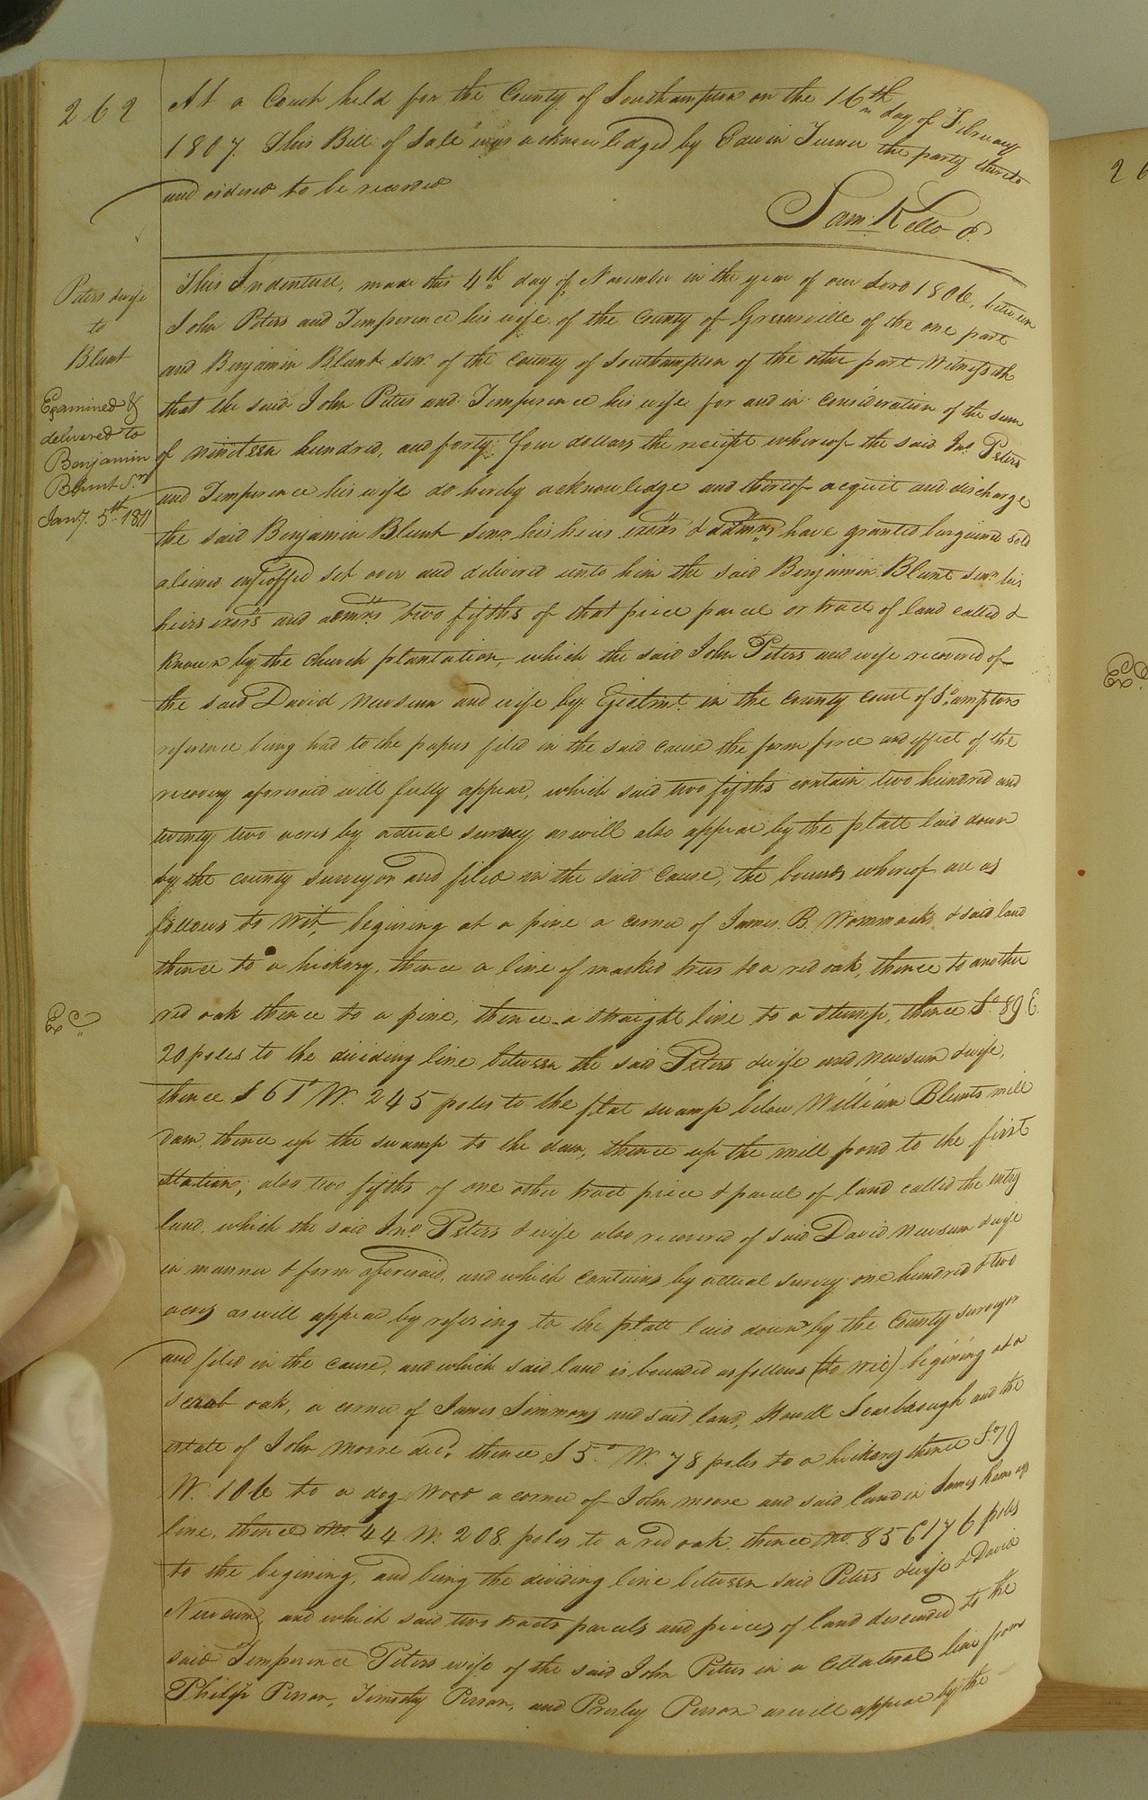 262
At a Court held for the County of Southampton on the 16th day of February
1807. This Bill of Sale was acknowledged by Edwin Turner the party thereto
and ordered to be recorded
Sam. Kello C.
Peters & wife
to
Blunt
Examined &
delivered to
Benjamin
Blunt Sr
Jany. 5th 1811
This Indenture, made this 4th day of November in the year of our Lord 1806, between
John Peters and Temperence his wife of the County of Greensville of the one part
and Benjamin Blunt senr. of the County of Southampton of the other part Witnesseth
that the said John Peters and Temperence his wife for and in consideration of the sum
of nineteen hundred, and forty four dollars the receipt whereof the said Jno. Peters
and Temperence his wife do hereby acknowledge and thereof acquit and discharge
the said Benjamin Blunt senr his heirs exors & admrs have granted bargained sold
aliened enfeoffed set over and delivered unto him the said Benjamin Blunt senr. his
heirs exors and admrs two fifths of that piece parcel or tract of land called &
known by the church plantation, which the said John Peters and wife recovered of
the said David Newsum and wife by Ejectmt. in the County Court of So.ampton
reference being had to the papers filed in the said cause the form force and effect of the
recovery aforesaid will fully appear, which said two fifths contain two hundred and
twenty two acres by actual survey as will also appear by the platt laid down
by the county surveyor and filed in the said Cause, the bounds whereof are as
follows to wit, begining at a pine a corner of James B. Wommacks & said land
thence to a hickory, thence a line of marked trees to a red oak, thence to another
red oak thence to a pine, thence a straight line to a stump, thence So 89 E.
20 poles to the dividing line between the said Peters & wife and Newsum & wife,
thence S 61° W. 245 poles to the flat swamp below William Blunts mill
dam, thence up the swamp to the dam, thence up the mill pond to the first
station; also two fifths of one other tract piece & parcel of land called the entry
land, which the said Jno. Peters & wife also recovered of said David Newsum & wife
in manner & form aforesaid, and which contains by actual survey one hundred & two
acres as will appear by refering to the platt laid down by the County surveyor
and filed in the cause, and which said land is bounded as follows (to wit) begining at a
scrub oak, a corner of James Simmons and said land, Howell Scarbrough and the
estate of John Moore decd. thence S 5° W. 78 poles to a hickory thence So. 79
W. 106 to a dog wood a corner of John Moore and said land in James
line, thence No. 44 W. 208 poles to a red oak, thence No. 85 E 176 poles
to the begining, and being the dividing line between said Peters & wife & David
Newsum, and which said two tracts parcels and pieces of land descended to the
said Temperence Peters wife of the said John Peters in a collateral line from
Philip Person, Timothy Person, and Presley Person as will appear by the